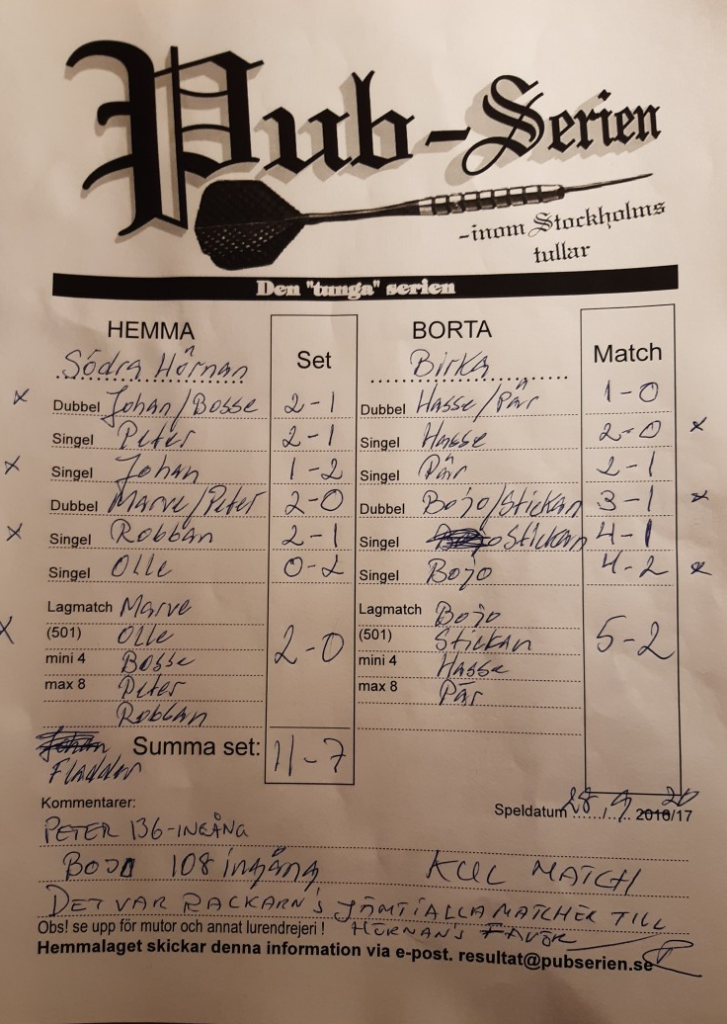 Pub-Serien
-inom Stockholms
tullar
Den "tunga" serien
HEMMA Set BORTA Match
Södra Hörnan Birka
x Dubbel Johan/Bosse 2-1 Dubbel Hasse/Pär 1-0
Singel Peter 2-1 Singel Hasse 2-0 x
x Singel Johan 1-2 Singel Pär 2-1
Dubbel Marve/Peter 2-0 Dubbel Bojo/Stickan 3-1 x
x Singel Robban 2-1 Singel Stickan 4-1
Singel Olle 0-2 Singel Bojo 4-2 x
Lagmatch Marve Lagmatch Bojo
x (501) Olle 2-0 (501) Stickan 5-2
mini 4 Bosse mini 4 Hasse
max 8 Peter max 8 Pär
Robban
Johan Summa set: 11-7
Fladder
Kommentarer: Speldatum 28/9 20 2016/17
PETER 136-INGÅNG
BOJO 108 ingång KUL MATCH
DET VAR RACKARN'S JÄMT I ALLA MATCHER TILL
Obs! se upp för mutor och annat lurendrejeri ! HÖRNAN'S FAVÖR
Hemmalaget skickar denna information via e-post. resultat@pubserien.se